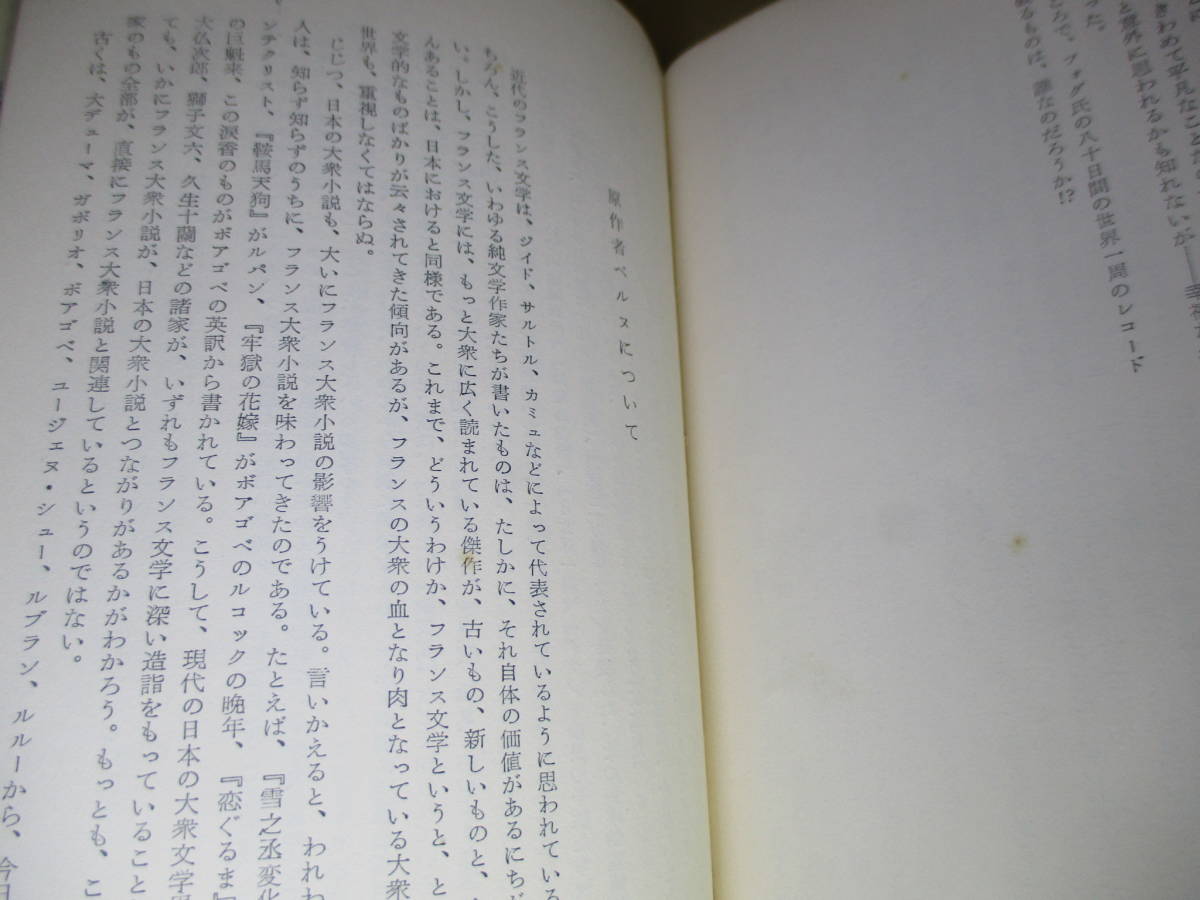 きわめて平凡なことだ
と意外に思われるかも知れないが——
った。
ころで、フォグ氏の八十日間の世界一周のレコード
あるものは、誰なのだろうか!?
原作者ベルヌについて
近代のフランス文学は、ジイド、サルトル、カミュなどによって代表されているように思われている
ちろん、こうした、いわゆる純文学作家たちが書いたものは、たしかに、それ自体の価値があるにち
い。しかし、フランス文学には、もっと大衆に広く読まれている傑作が、古いもの、新しいものと、
んあることは、日本におけると同様である。これまで、どういうわけか、フランス文学というと、と
文学的なものばかりが云々されてきた傾向があるが、フランスの大衆の血となり肉となっている大衆
世界も、重視しなくてはならぬ。
じじつ、日本の大衆小説も、大いにフランス大衆小説の影響をうけている。言いかえると、われわ
人は、知らず知らずのうちに、フランス大衆小説を味わってきたのである。たとえば、『雪之丞変化
ンテクリスト、『鞍馬天狗』がルパン、『牢獄の花嫁』がボアゴベのルコックの晩年、『恋ぐるま』
の巨魁来、この涙香のものがボアゴベの英訳から書かれている。こうして、現代の日本の大衆文学
大仏次郎、獅子文六、久生十蘭などの諸家が、いずれもフランス文学に深い造詣をもっていること
ても、いかにフランス大衆小説が、日本の大衆小説とつながりがあるかがわかろう。もっとも、こ
家のもの全部が、直接にフランス大衆小説と関連しているというのではない。
古くは、大デューマ、ガボリオ、ボアゴベ、ユージェヌ・シュー、ルブラン、ルルーから、今日